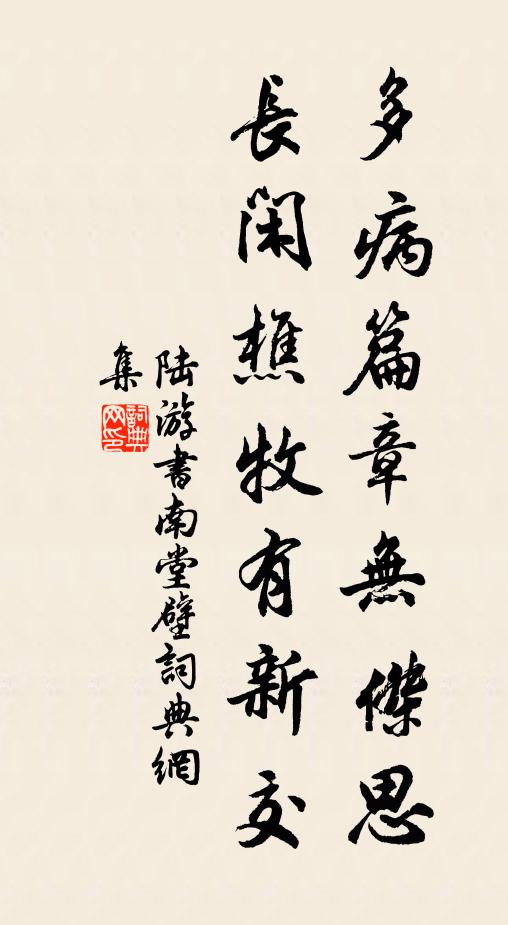 多病篇章無傑思
長閑樵牧有新交
陸游書南堂壁詞典網
集
詞典网印